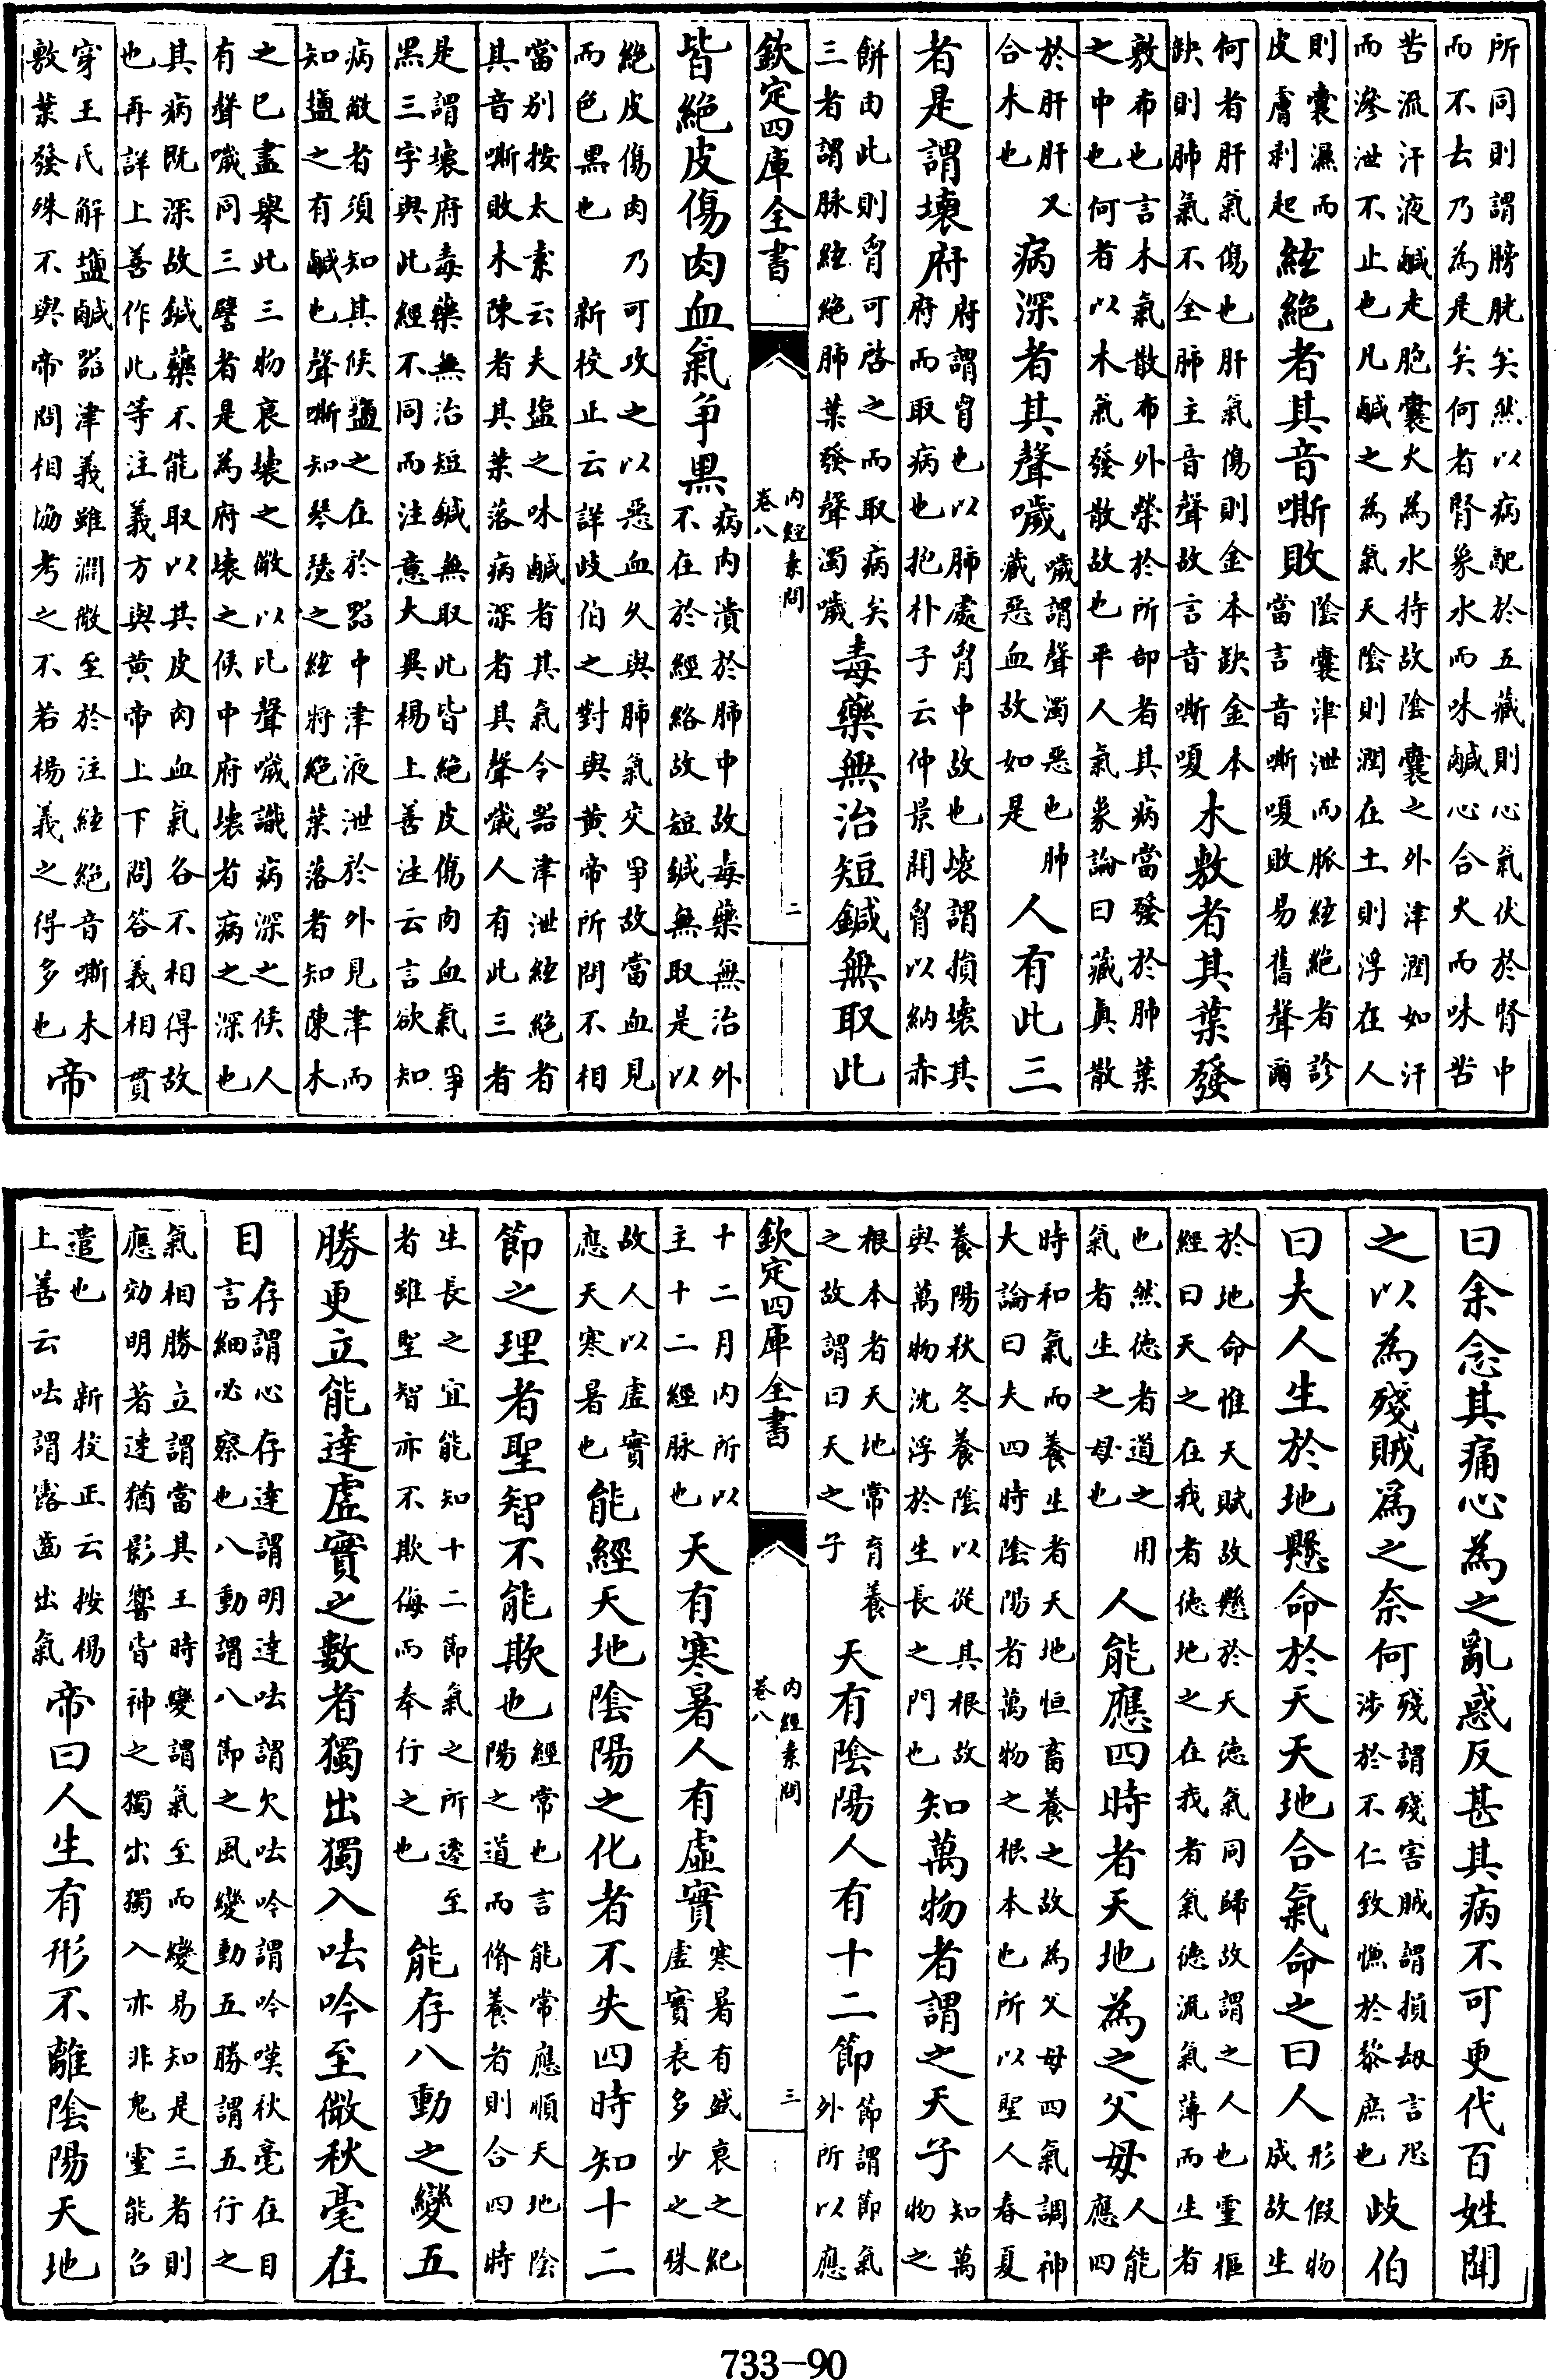 所同則謂膀胱矣然以病配於五藏則心氣伏於腎中
而不去乃為是矣何者腎象水而味鹹心合火而味苦
苦流汗液鹹走胞囊火為水持故陰囊之外津潤如汗
而滲泄不止也凡鹹之為氣天陰則潤在土則浮在人
則囊濕而
皮膚剥起絃絶者其音嘶敗陰囊津泄而脈絃絶者診
當言音嘶嗄敗易舊聲爾
何者肝氣傷也肝氣傷則金本缺金本
缺則肺氣不全肺主音聲故言音嘶嗄木敷者其葉發
敷布也言木氣散布外榮於所部者其病當發於肺葉
之中也何者以木氣發散故也平人氣象論曰藏真散
於肝肝又
合木也病深者其聲噦噦謂聲濁惡也肺
藏惡血故如是人有此三
者是謂壞府府謂胷也以肺處胷中故也壞謂損壞其
府而取病也抱朴子云仲景開胷以納赤
餅由此則胷可啓之而取病矣
三者謂脉絃絶肺葉發聲濁噦毒藥無治短鍼無取此
欽定四庫全書
內經素問
卷八
二
皆絶皮傷肉血氣争黒病内潰於肺中故毒藥無治外
不在於經絡故短鍼無取是以
絶皮傷肉乃可攻之以惡血久與肺氣交爭故當血見
而色黒也新校正云詳歧伯之對與黄帝所問不相
當别按太素云夫塩之味鹹者其氣令器津泄絃絶者
其音嘶敗木陳者其葉落病深者其聲噦人有此三者
是謂壞府毒藥無治短鍼無取此皆絶皮傷肉血氣爭
黒三字與此經不同而注意大異楊上善注云言欲知
病㣲者須知其候鹽之在於器中津液泄於外見津而
知鹽之有鹹也聲嘶知琴瑟之絃將絶葉落者知陳木
之已盡舉此三物衰壞之㣲以比聲噦識病深之候人
有聲噦同三譬者是為府壞之候中府壞者病之深也
其病既深故鍼藥不能取以其皮肉血氣各不相得故
也再詳上善作此等注義方與黄帝上下問答義相貫
穿王氏解鹽鹹器津義雖淵㣲至於注絃絶音嘶木
敷葉發殊不與帝問相恊考之不若楊義之得多也帝
曰余念其痛心為之亂惑反甚其病不可更代百姓聞
之以為殘賊爲之奈何殘謂殘害賊謂損劫言恐
涉於不仁致慊於黎庶也歧伯
曰夫人生於地懸命於天天地合氣命之曰人形假物
成故生
於地命惟天賦故懸於天徳氣同歸故謂之人也靈樞
經曰天之在我者徳地之在我者氣徳流氣薄而生者
也然徳者道之用
氣者生之母也人能應四時者天地為之父毋人能
應四
時和氣而養生者天地恒畜養之故為父母四氣調神
大論曰夫四時陰陽者萬物之根本也所以聖人春夏
養陽秋冬養陰以從其根故
與萬物沈浮於生長之門也知萬物者謂之天子知萬
物之
根本者天地常育養
之故謂曰天之子天有陰陽人有十二節節謂節氣
外所以應
欽定四庫全書
內經素問
卷八
三
十二月內所以
主十二經脉也天有寒暑人有虚實寒暑有盛衰之紀
虚實表多少之殊
故人以虚實
應天寒暑也能經天地陰陽之化者不失四時知十二
節之理者聖智不能欺也經常也言能常應順天地陰
陽之道而脩養者則合四時
生長之宜能知十二節氣之所遷至
者雖聖智亦不欺侮而奉行之也能存八動之變五
勝更立能逹虚實之數者獨出獨入呿吟至㣲秋毫在
目存謂心存逹謂明逹呿謂欠呿吟謂吟嘆秋毫在目
言細必察也八動謂八節之風變動五勝謂五行之
氣相勝立謂當其王時變謂氣至而變易知是三者則
應効明著速猶影響皆神之獨出獨入亦非鬼靈能召
遣也新校正云按楊
上善云呿謂露齒出氣帝曰人生有形不離陰陽天地
733-90